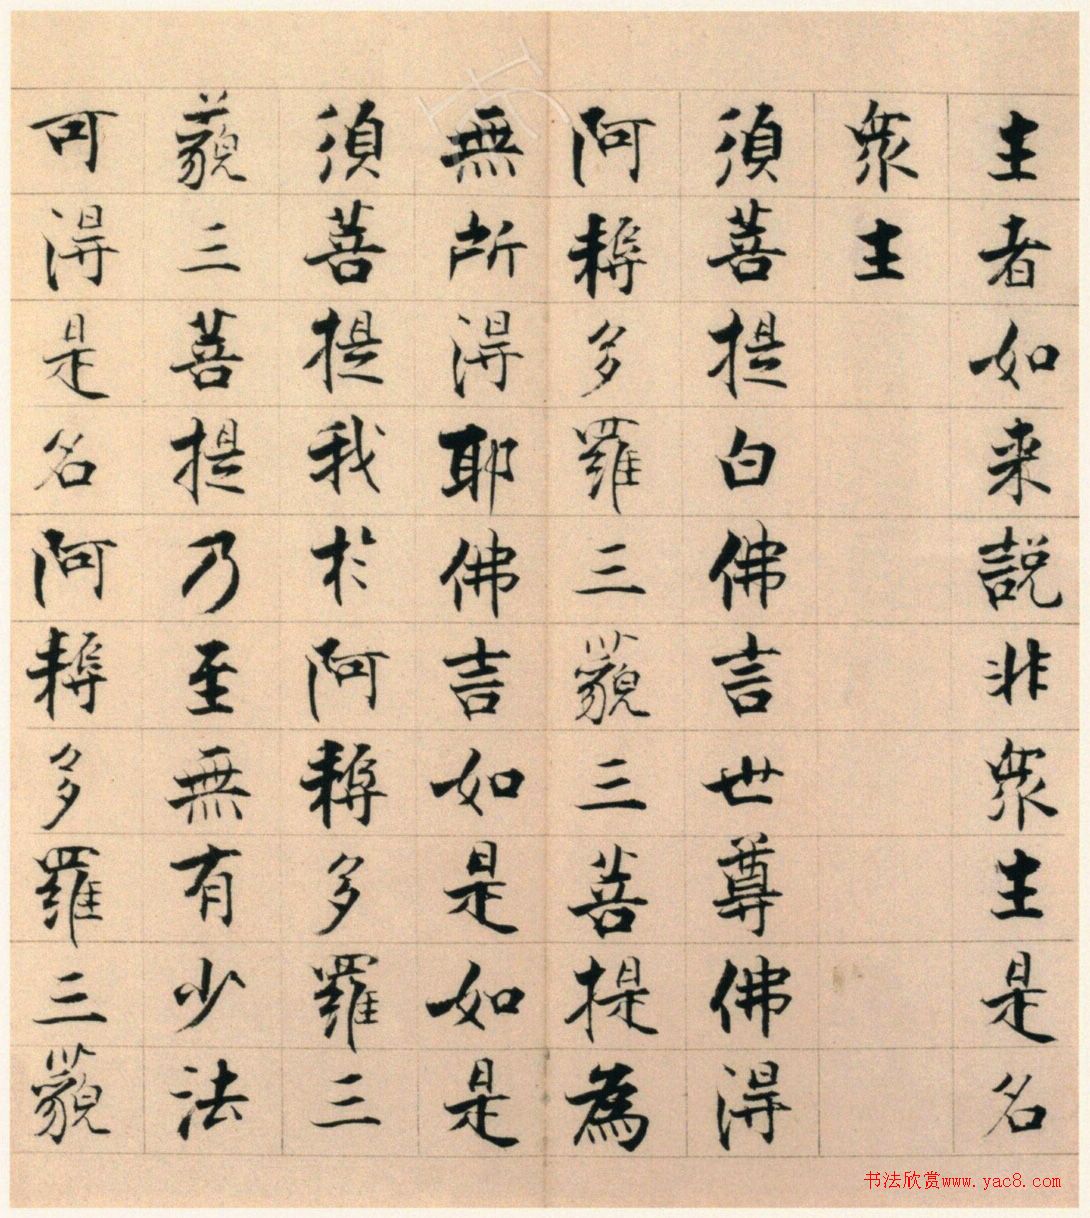 生者如来説非衆生是名
衆生
須菩提白佛言世尊佛得
阿耨多羅三藐三菩提為
無所得耶佛言如是如是
須菩提我於阿耨多羅三
藐三菩提乃至無有少法
可得是名阿耨多羅三藐
书法欣赏www.yac8.com